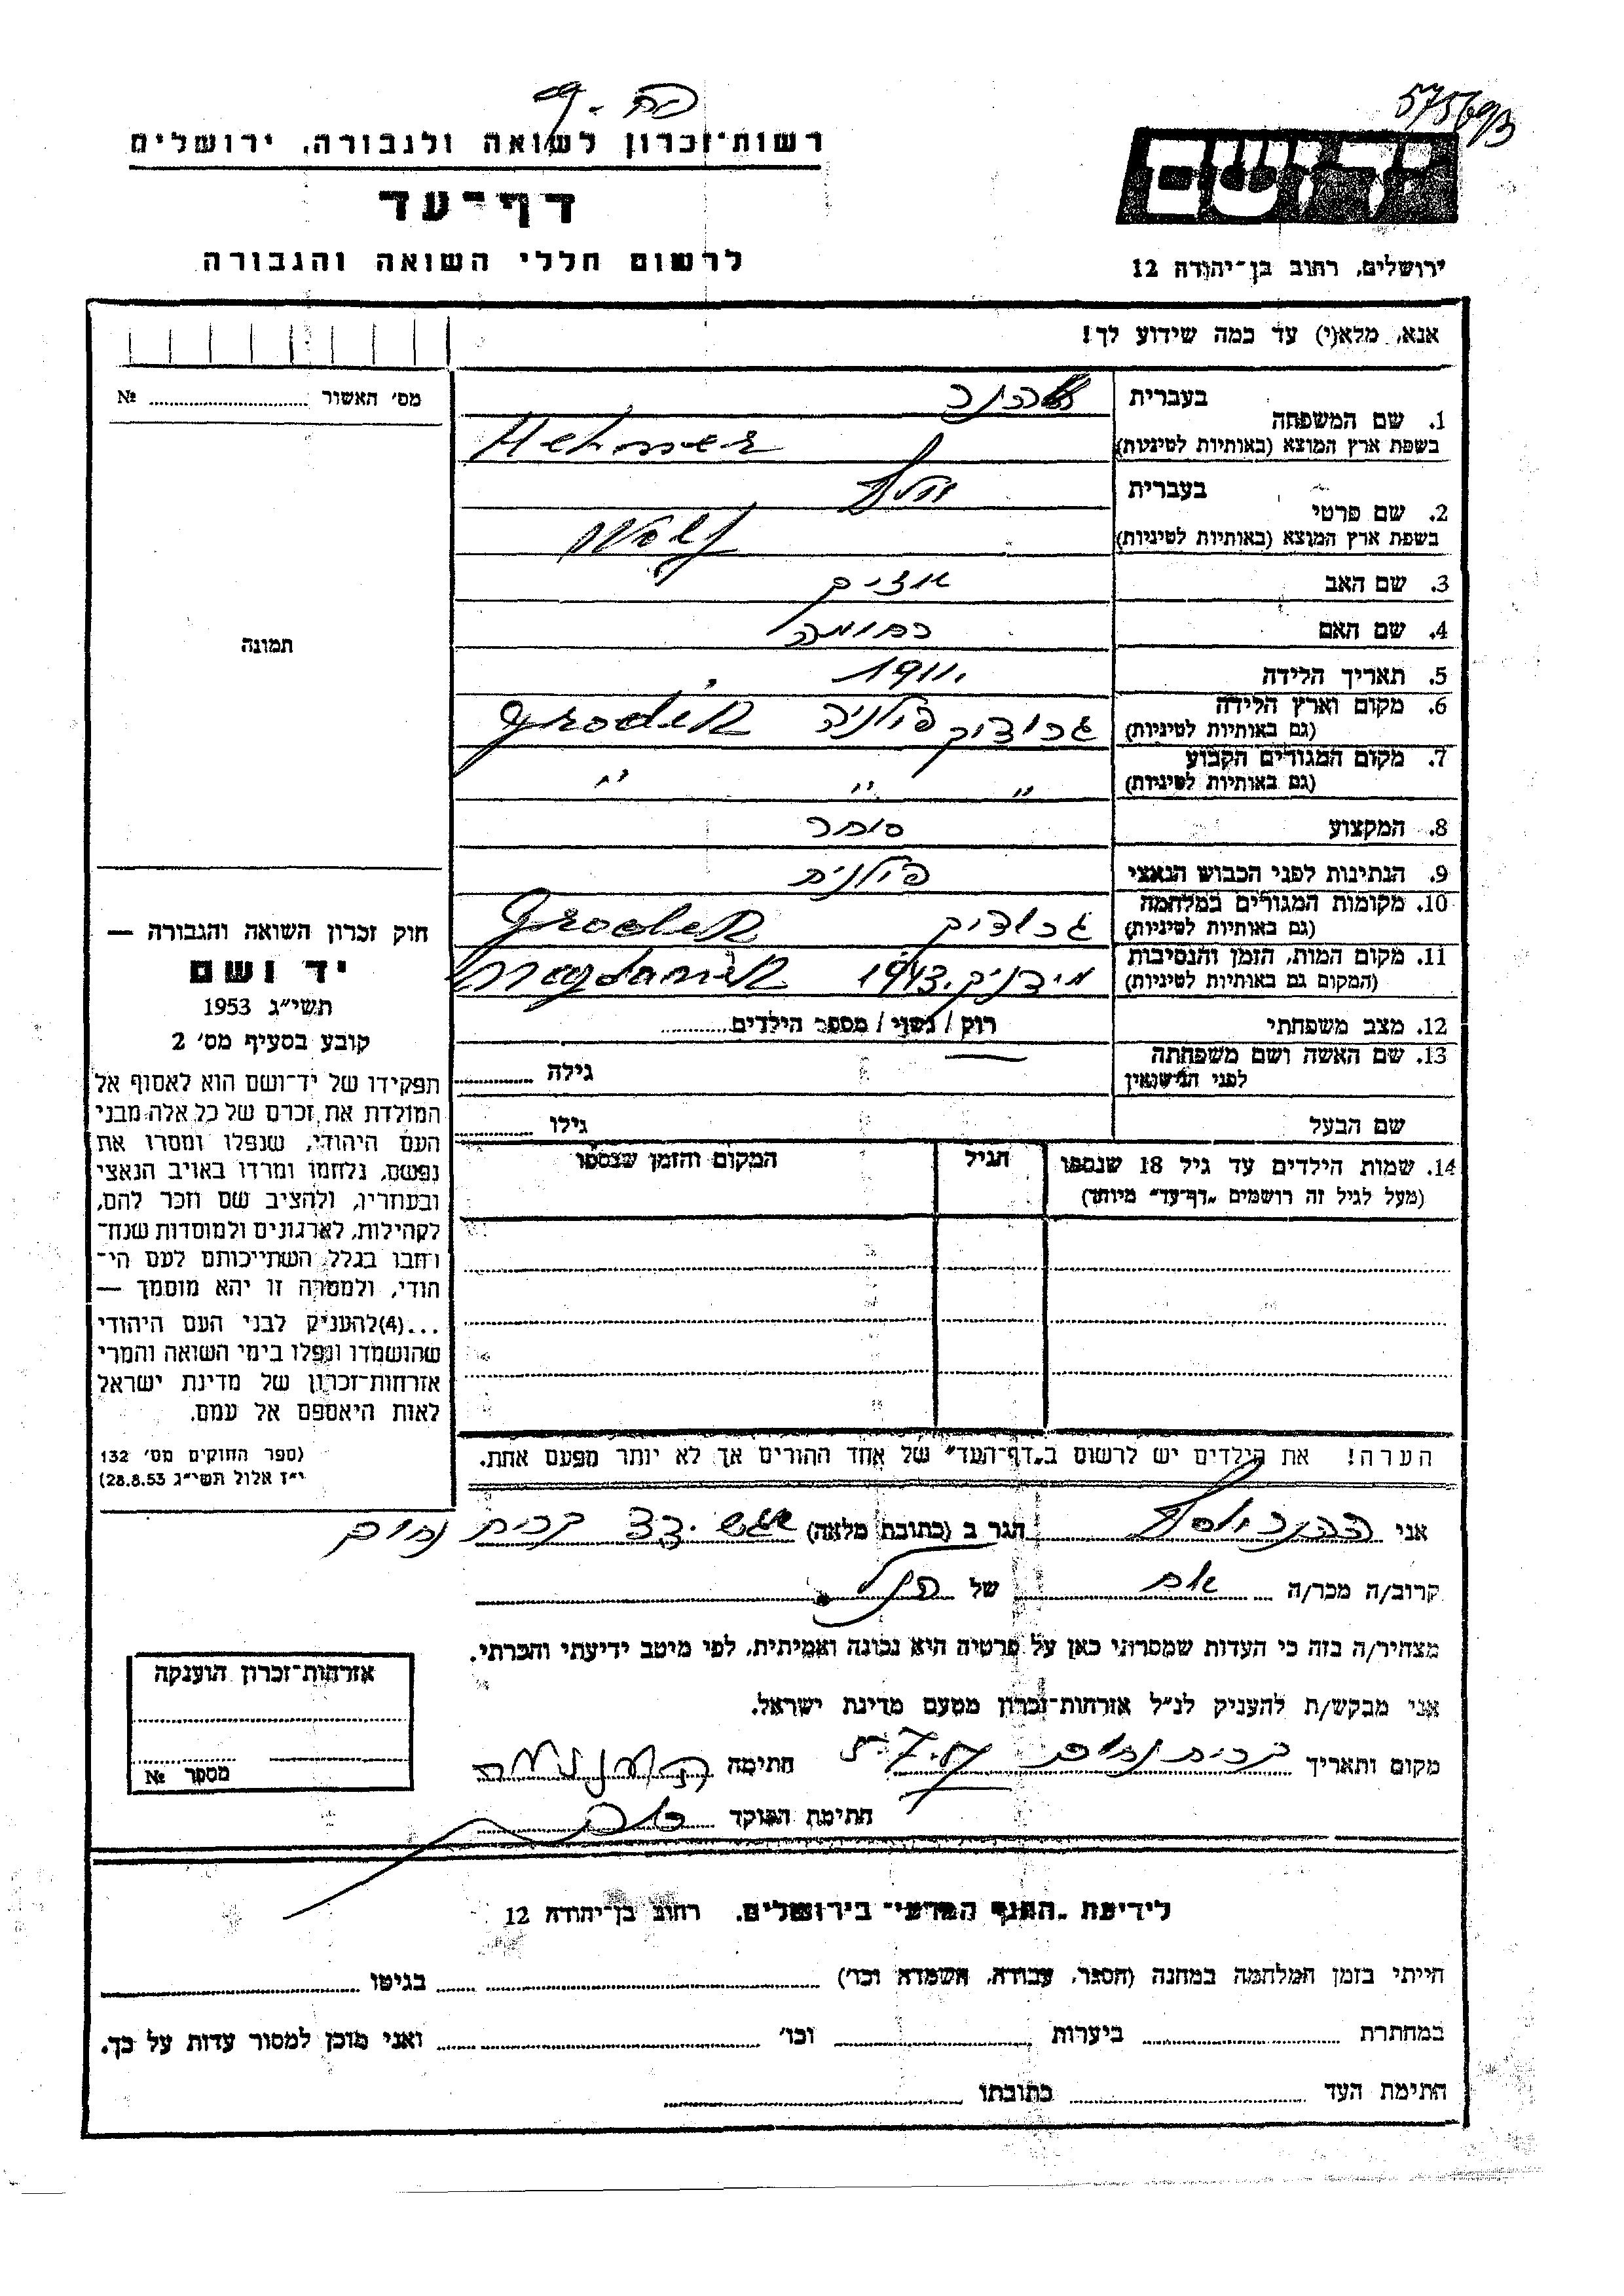 57569/3
רשות־זכרון לשואה ולגבורה, ירושלים
יד ושם
דף־עד
לרשום חללי השואה והגבורה
ירושלים, רחוב בן־יהודה 12
אנא, מלא(י) עד כמה שידוע לך!
מס׳ האשור .......... №
בעברית
1. שם המשפחה
בשפת ארץ המוצא (באותיות לטיניות)
בעברית
2. שם פרטי
בשפת ארץ המוצא (באותיות לטיניות) Wolf
3. שם האב
4. שם האם
5. תאריך הלידה 1911.
6. מקום וארץ הלידה
(גם באותיות לטיניות) גרודיק פולניה Grodek
7. מקום המגורים הקבוע
(גם באותיות לטיניות) " " "
8. המקצוע סוחר
9. הנתינות לפני הכבוש הנאצי פולנית
10. מקומות המגורים במלחמה
(גם באותיות לטיניות) גרודיק Grodek
11. מקום המות, הזמן והנסיבות
(המקום גם באותיות לטיניות) מידניק. 1943 Majdanek
12. מצב משפחתי רוק / נשוי / מספר הילדים..........
13. שם האשה ושם משפחתה
לפני הנישואין גילה ..........
שם הבעל גילו ..........
14. שמות הילדים עד גיל 18 שנספו
(מעל לגיל זה רושמים „דף־עד״ מיוחד)
הגיל
המקום והזמן שנספו
תמונה
חוק זכרון השואה והגבורה —
יד ושם
תשי״ג 1953
קובע בסעיף מס׳ 2
תפקידו של יד־ושם הוא לאסוף אל
המולדת את זכרם של כל אלה מבני
העם היהודי, שנפלו ומסרו את
נפשם, נלחמו ומרדו באויב הנאצי
ובעוזריו, ולהציב שם וזכר להם,
לקהילות, לארגונים ולמוסדות שנח־
רובו בגלל השתייכותם לעם הי־
הודי, ולמטרה זו יהא מוסמך —
...(4)להעניק לבני העם היהודי
שהושמדו ונפלו בימי השואה והמרי
אזרחות־זכרון של מדינת ישראל
לאות היאספם אל עמם.
(ספר החוקים מס׳ 132
י״ז אלול תשי״ג 28.8.53)
הערה! את הילדים יש לרשום ב„דף־העד״ של אחד ההורים אך לא יותר מפעם אחת.
אני .......... הגר ב (כתובת מלאה) קרית נחום
קרוב/ה מכר/ה .......... של ..........
מצהיר/ה בזה כי העדות שמסרתי כאן על פרטיה היא נכונה ואמיתית, לפי מיטב ידיעתי והכרתי.
אני מבקש/ת להעניק לנ״ל אזרחות־זכרון מטעם מדינת ישראל.
מקום ותאריך קרית נחום חתימה
חתימת הפוקד
אזרחות־זכרון הוענקה
מספר №
לידיעת „האגף המדעי״ בירושלים, רחוב בן־יהודה 12
הייתי בזמן המלחמה במחנה (הסגר, עבודה, השמדה וכו׳) .......... בגיטו ..........
במחתרת .......... ביערות .......... וכו׳ .......... ואני מוכן למסור עדות על כך.
חתימת העד .......... כתובתו ..........